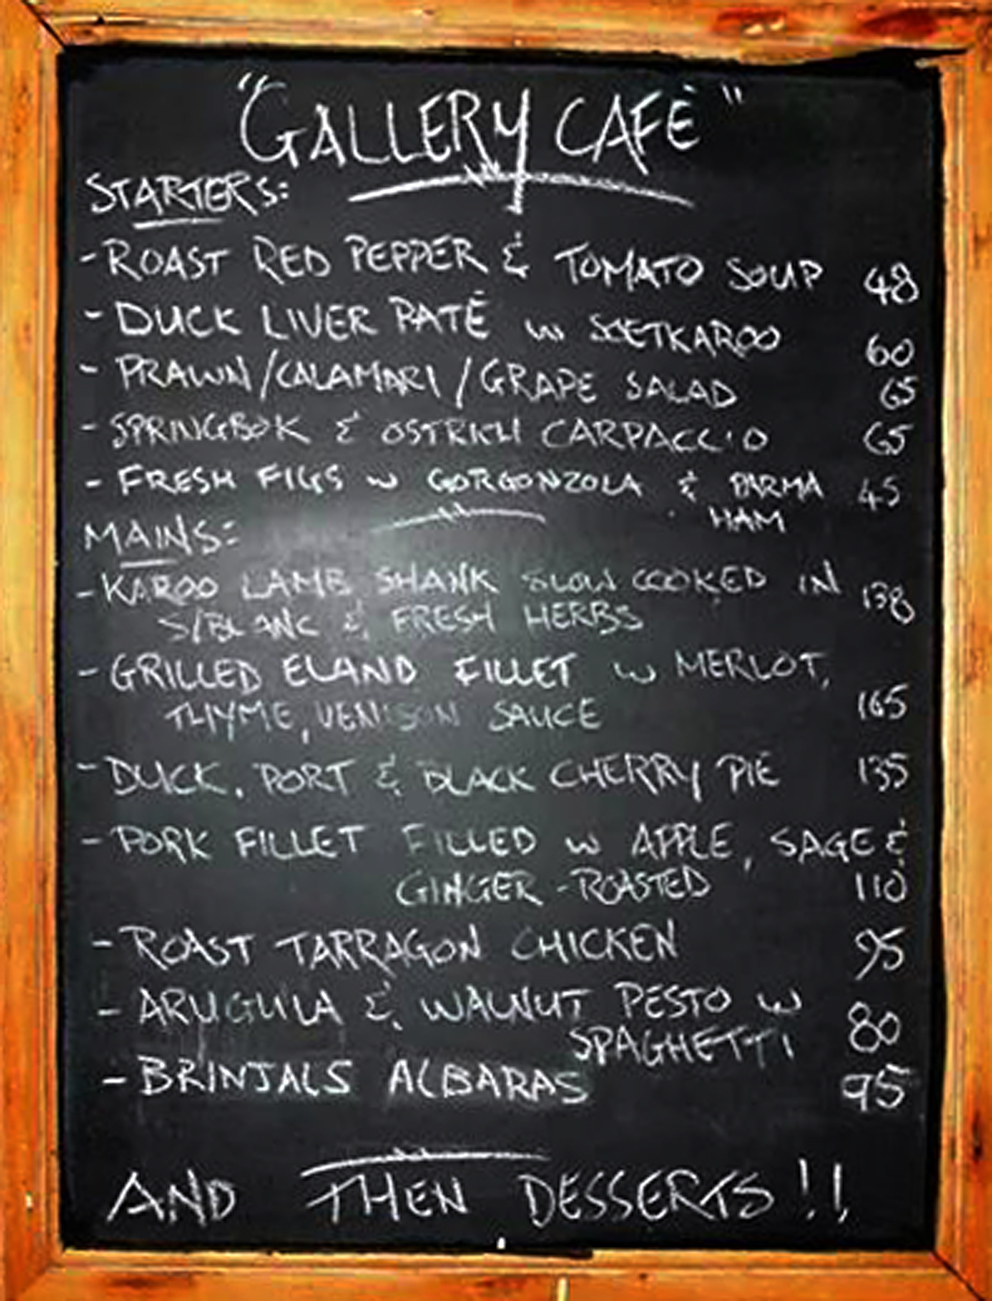 "GALLERY CAFÉ"
STARTERS:
- ROAST RED PEPPER & TOMATO SOUP 48
- DUCK LIVER PATÉ w SOETKAROO 60
- PRAWN/CALAMARI/GRAPE SALAD 65
- SPRINGBOK & OSTRICH CARPACCIO 65
- FRESH FIGS w GORGONZOLA & PARMA 45
HAM
MAINS:
- KAROO LAMB SHANK SLOW COOKED IN 138
S/BLANC & FRESH HERBS
- GRILLED ELAND FILLET w MERLOT,
THYME, VENISON SAUCE 165
- DUCK, PORT & BLACK CHERRY PIE 135
- PORK FILLET FILLED w APPLE, SAGE &
GINGER - ROASTED 110
- ROAST TARRAGON CHICKEN 95
- ARUGULA & WALNUT PESTO w 80
SPAGHETTI
- BRINJALS ALBARAS 95
AND THEN DESSERTS!!